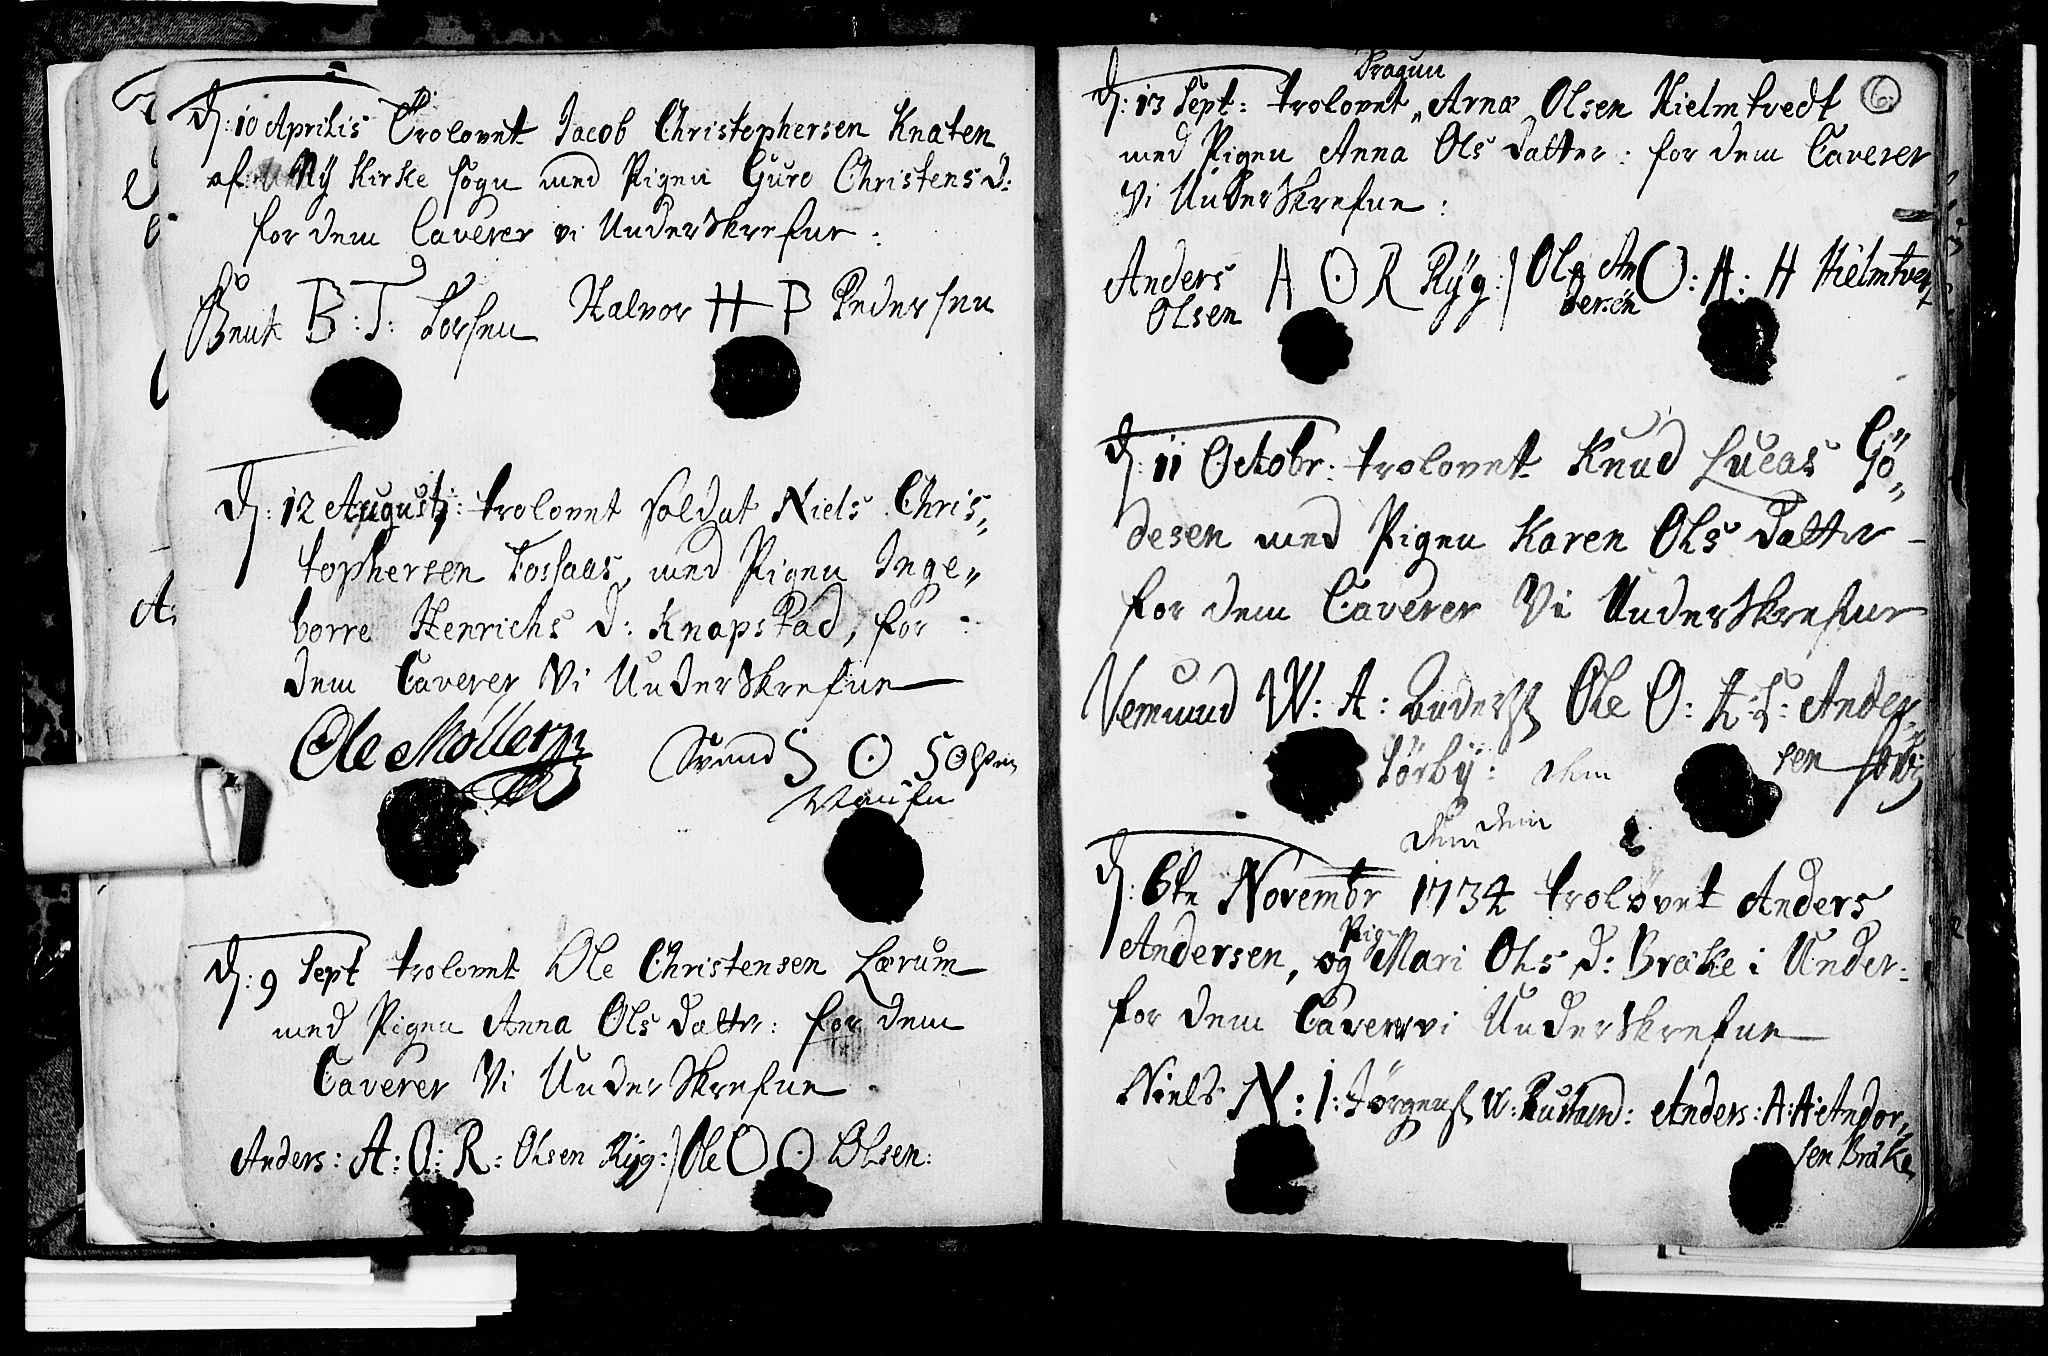 D: 10 Aprilis Trolovet Jacob Christophersen Knaten
af Ny Kirke sogn med Pigen Guro Christens D:
for dem Caverer vi Underskrefne:
Bent B: T: Torsen Halvor H P Pedersen
D: 12 Augusti: trolovet soldat Niels Chris„
tophersen Fossaas, med Pigen Inge„
borre Henrichs D: Knapstad, for
dem Caverer Vi Underskrefne
Ole Moller
Svend S O S Olsen
D: 9 Sept trolovet Ole Christensen Lærum
med Pigen Anna Ols datter: for dem
Caverer Vi Underskrefne
Anders: A: O: R: Olsen Ryg: / Ole O O Olsen:
6
Dragun
D: 13 Sept: trolovet „ Arne Olsen Hielmtvedt
med Pigen Anna Ols datter: for dem Caverer
Vi Underskrefne:
Anders A O R Ryg: / Ole An O: A: H Hielmtvet
Olsen dersen
D: 11 Octobr: trolovet Knud Lucas Gö„
desen med Pigen Karen Ols datter
for dem Caverer Vi Underskrefne
Vemund W: A: Ole O: A: S: Ander„
Sörby: dem sen Sörby
dem dem
D: 6te Novembr 1734 trolovet Anders
Pig
Andersen, og Mari Ols D: Bräke i Under:
for dem Caverer vi Underskrefne
Niels N: I: Jörgens Anders: A: A: Ander„
sen Bräke